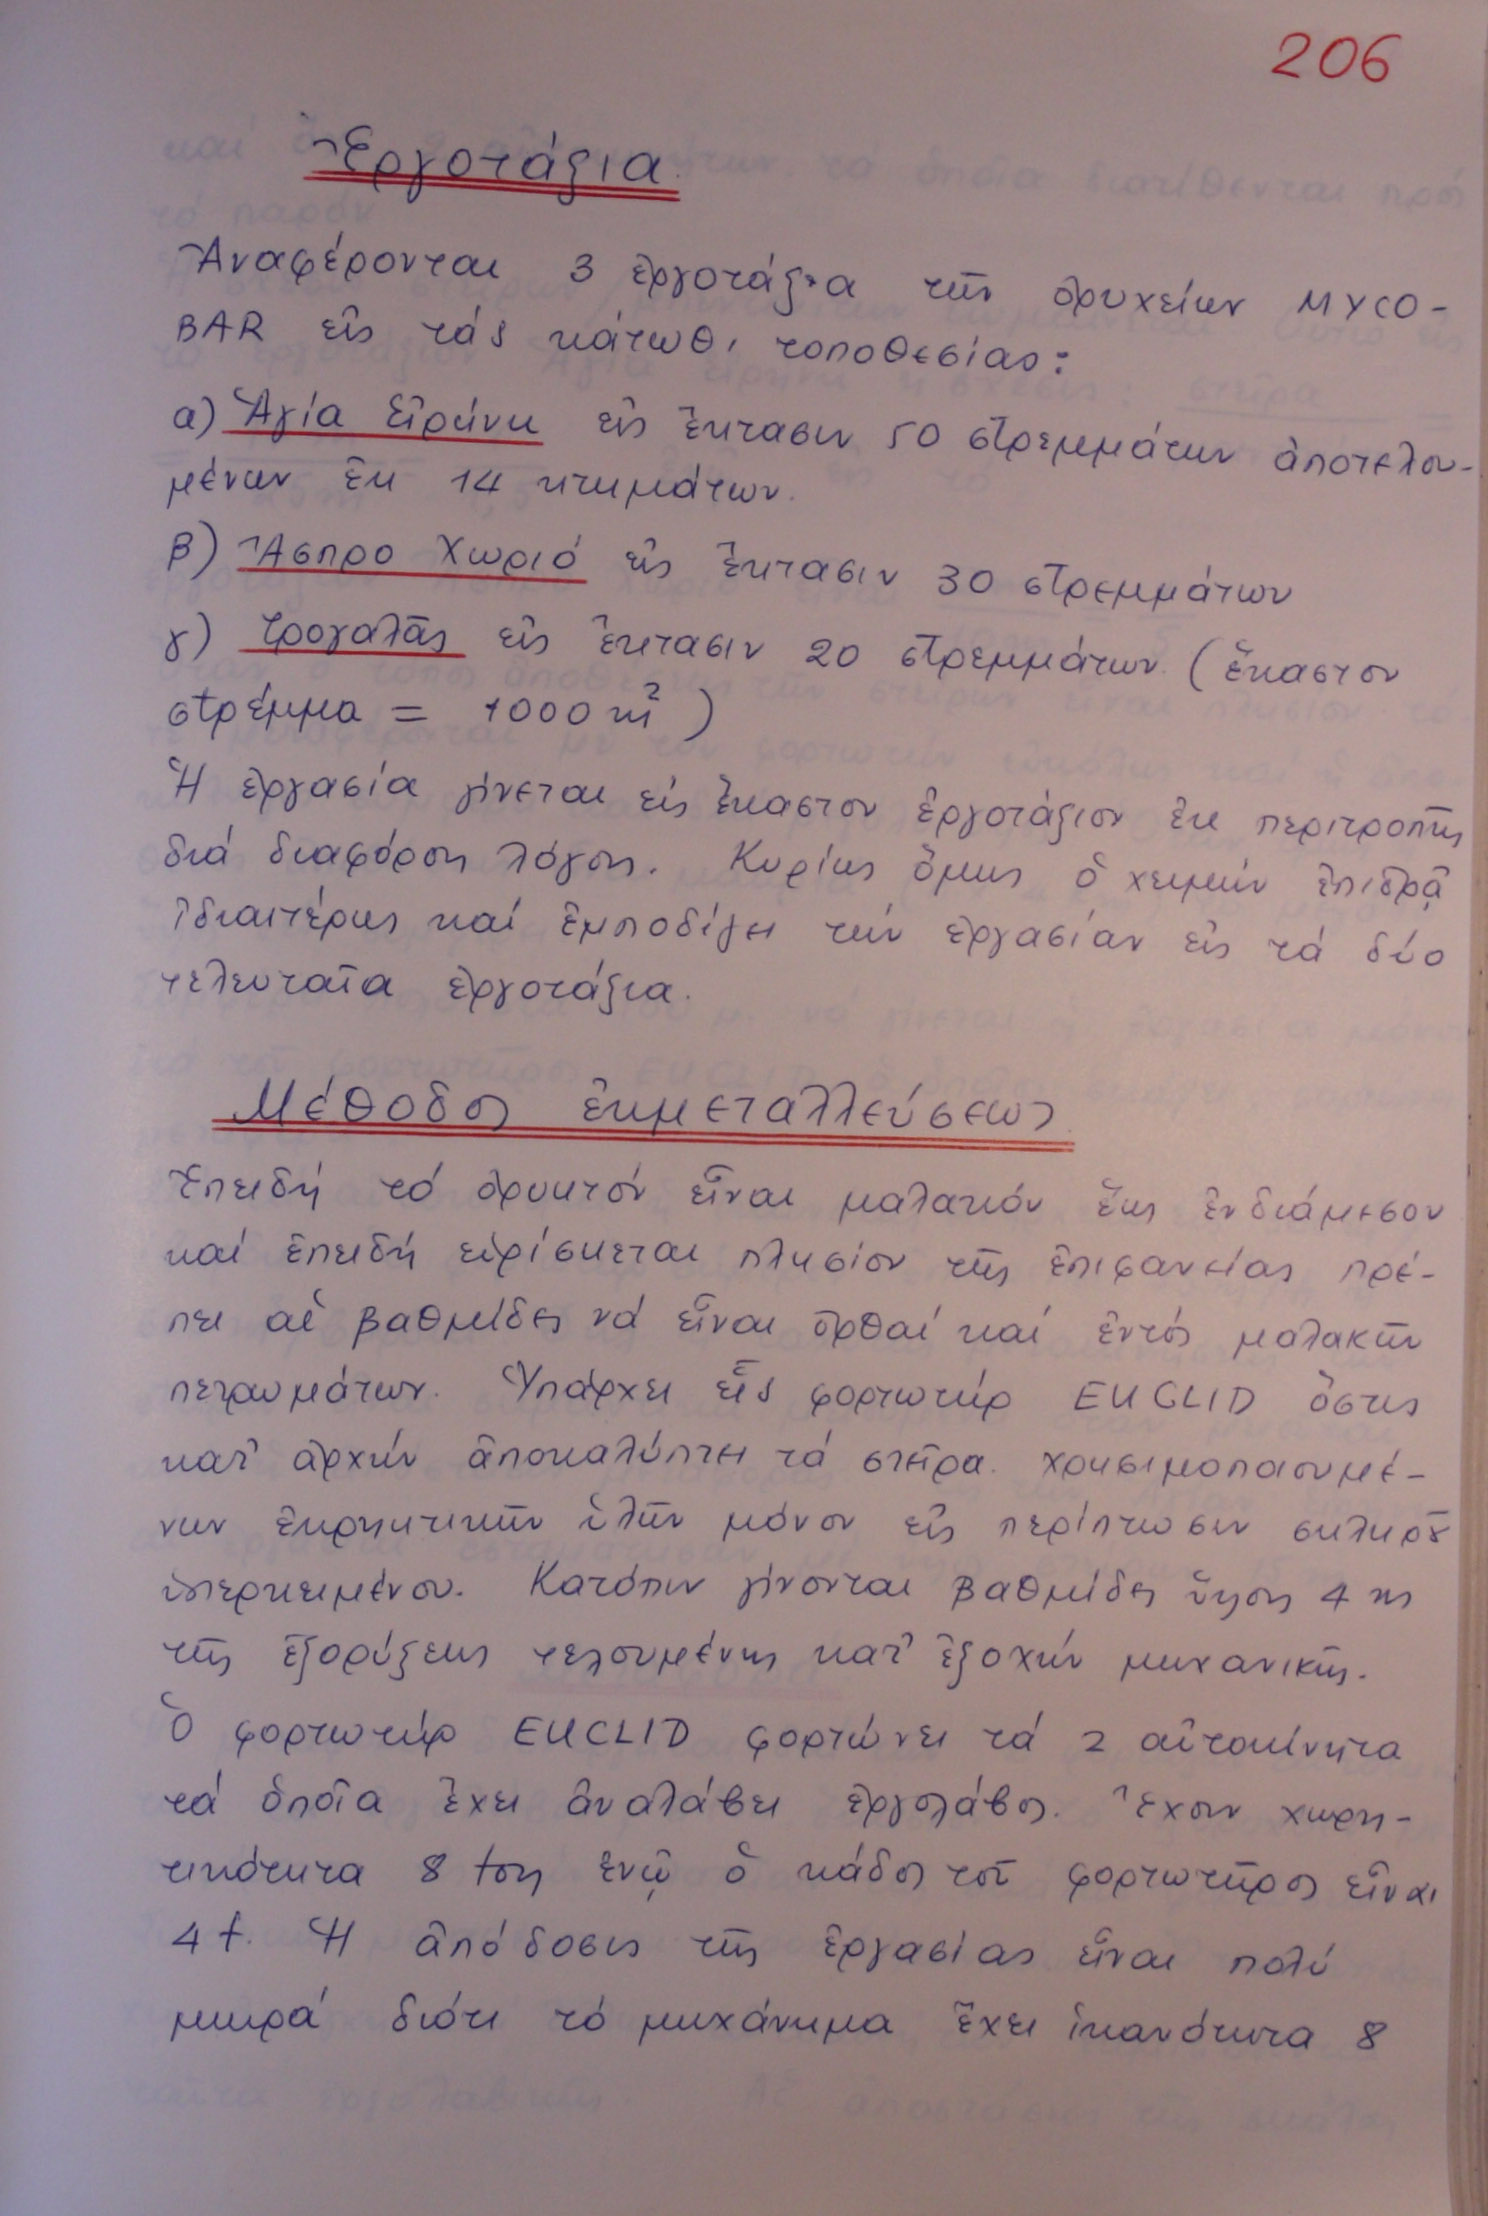 206
Ἐργοτάξια.
Ἀναφέρονται 3 ἐργοτάξια τῶν ὀρυχείων MYCO-
BAR εἰς τάς κάτωθι τοποθεσίας:
α) Ἁγία Εἰρήνη εἰς ἔκτασιν 50 στρεμμάτων ἀποτελου-
μένων ἐκ 14 κτημάτων.
β) Ἄσπρο Χωριό εἰς ἔκτασιν 30 στρεμμάτων
γ) Τρογαλᾶς εἰς ἔκτασιν 20 στρεμμάτων (ἕκαστον
στρέμμα = 1000 m²)
Ἡ ἐργασία γίνεται εἰς ἕκαστον ἐργοτάξιον ἐκ περιτροπῆς
διά διαφόρους λόγους. Κυρίως ὅμως ὁ χειμών ἐπιδρᾷ
ἰδιαιτέρως καί ἐμποδίζει τήν ἐργασίαν εἰς τά δύο
τελευταῖα ἐργοτάξια.
Μέθοδος ἐκμεταλλεύσεως
Ἐπειδή τό ὀρυκτόν εἶναι μαλακόν ἕως ἐνδιάμεσον
καί ἐπειδή εὑρίσκεται πλησίον τῆς ἐπιφανείας πρέ-
πει αἱ βαθμίδες νά εἶναι ὀρθαί καί ἐντός μαλακῶν
πετρωμάτων. Ὑπάρχει εἷς φορτωτήρ EUCLID ὅστις
κατ' ἀρχήν ἀποκαλύπτει τά στεῖρα χρησιμοποιουμέ-
νων ἐκρηκτικῶν ὑλῶν μόνον εἰς περίπτωσιν σκληροῦ
ὑπερκειμένου. Κατόπιν γίνονται βαθμίδες ὕψους 4 m
τῆς ἐξορύξεως τελουμένης κατ' ἐξοχήν μηχανικῶς.
Ὁ φορτωτήρ EUCLID φορτώνει τά 2 αὐτοκίνητα
τά ὁποῖα ἔχει ἀναλάβει ἐργολάβος. Ἔχουν χωρη-
τικότητα 8 τους ἐνῷ ὁ κάδος τοῦ φορτωτῆρος εἶναι
4 t. Ἡ ἀπόδοσις τῆς ἐργασίας εἶναι πολύ
μικρά διότι τό μηχάνημα ἔχει ἱκανότητα 8